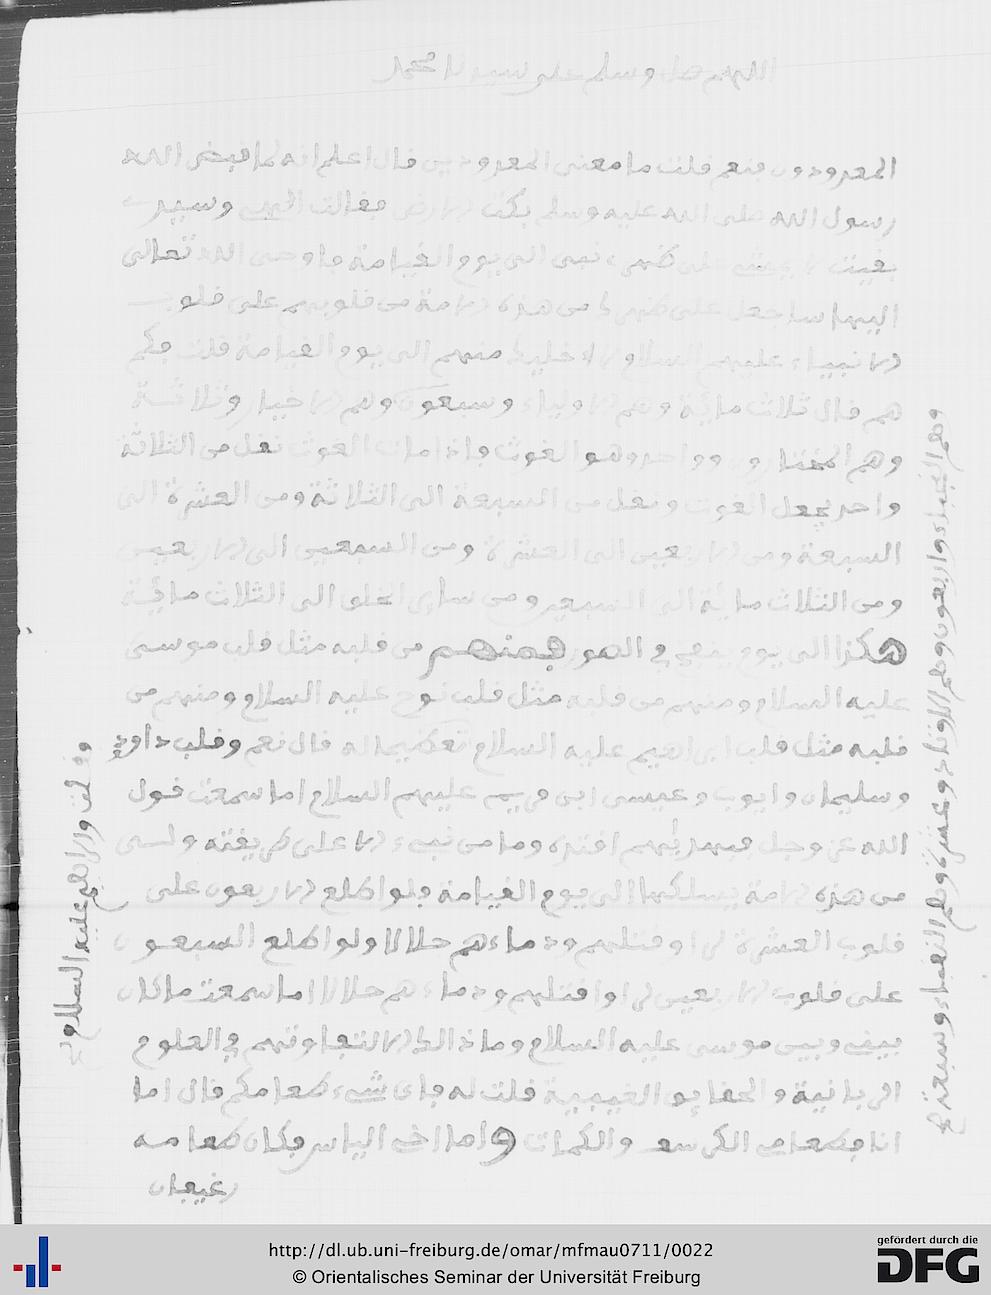 اللهم صل وسلم على سيدنا محمد
المعدودون فنعم قلت ما معنى المعدودين قال اعلم انه لما قبض الله
رسول الله صلى الله عليه وسلم بكت الارض فقالت الهي وسيدي
بقيت لا يمشي على ظهري نبي الى يوم القيامة فاوحى الله تعالى
اليها ساجعل على ظهرك من هذه الامة من قلوبهم على قلوب
الانبياء عليهم السلام لا اخليك منهم الى يوم القيامة قلت فكم
هم قال ثلاث مائة وهم الاولياء وسبعون وهم الاخيار وثلاثة
وهم المختارون وواحد وهو الغوث فاذا مات الغوث نقل من الثلاثة
واحد يجعل الغوث ونقل من السبعة الى الثلاثة ومن العشرة الى
السبعة ومن الاربعين الى العشرة ومن السبعين الى الاربعين
ومن الثلاث مائة الى السبعين ومن سائر الخلق الى الثلاث مائة
هكذا الى يوم ينفخ في الصور فمنهم من قلبه مثل قلب موسى
عليه السلام ومنهم من قلبه مثل قلب نوح عليه السلام ومنهم من
قلبه مثل قلب ابراهيم عليه السلام تعظيما له قال نعم وقلب داود
وسليمان وايوب وعيسى ابن مريم عليهم السلام اما سمعت قول
الله عز وجل فبهديهم اقتده وما من نبيء الا على طريقته
من هذه الامة يسلكها الى يوم القيامة فلو اطلع الاربعون على
قلوب العشرة لراو قتلهم ودماءهم حلالا ولو اطلع السبعون
على قلوب الاربعين لراوا قتلهم ودماءهم حلالا اما سمعت ما كان
بيني وبين موسى عليه السلام وما ذالك الا لتفاوتهم في العلوم
الربانية والحقايق الغيبية قلت له فاى شيء طعامكم قال اما
انا فطعامي الكرسف والكماة واما اخي الياس فكان طعامه
رغيفان
وهم النجباء واربعون وهم الاوتاد وعشرة وهم النقباء وسبعة
وقلت وابراهيم عليه السلام
http://dl.ub.uni-freiburg.de/omar/mfmau0711/0022
© Orientalisches Seminar der Universität Freiburg
gefördert durch die
DFG